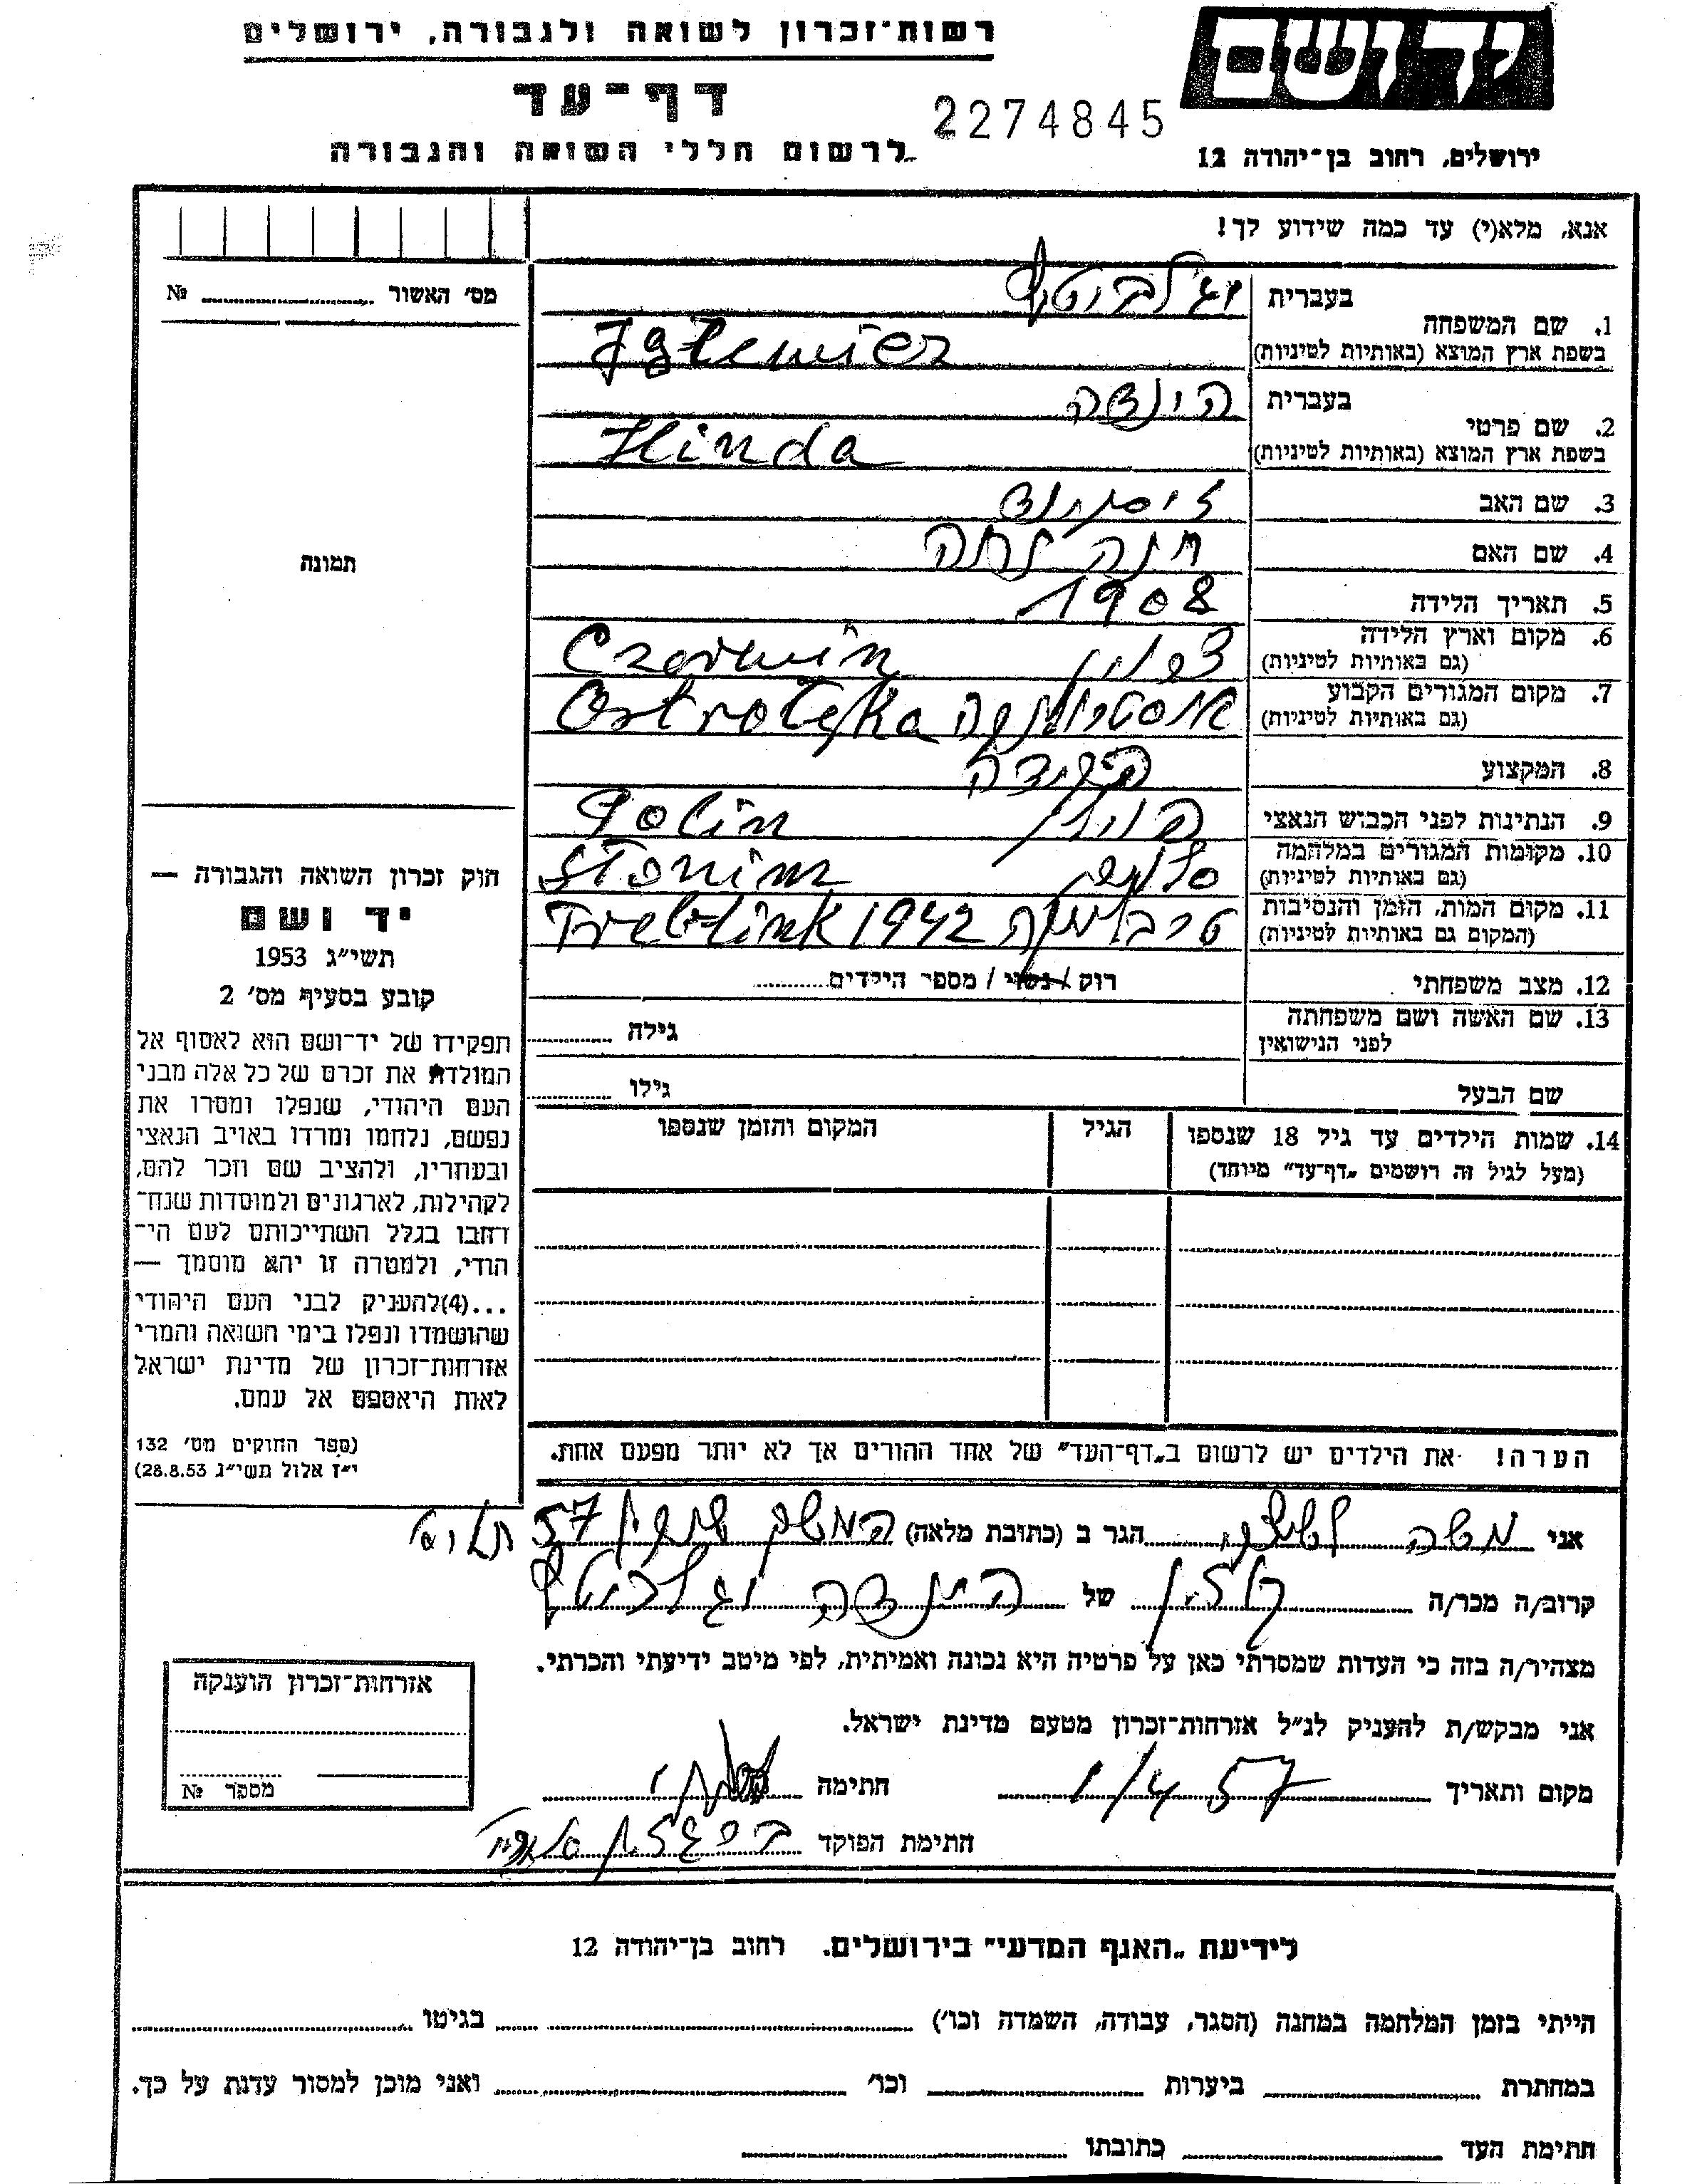 רשות־זכרון לשואה ולגבורה, ירושלים
יד ושם
דף־עד
2274845
לרשום חללי השואה והגבורה
ירושלים, רחוב בן־יהודה 12
אנא, מלא(י) עד כמה שידוע לך!
מס׳ האשור № 
תמונה
1. שם המשפחה
בעברית
בשפת ארץ המוצא (באותיות לטיניות)
2. שם פרטי
בעברית הינדה
בשפת ארץ המוצא (באותיות לטיניות) Hinda
3. שם האב
4. שם האם חנה
5. תאריך הלידה 1908
6. מקום וארץ הלידה
(גם באותיות לטיניות)
7. מקום המגורים הקבוע
(גם באותיות לטיניות) Ostrołęka
8. המקצוע פקידה
9. הנתינות לפני הכבוש הנאצי פולין Polin
10. מקומות המגורים במלחמה
(גם באותיות לטיניות) Słonim
11. מקום המות, הזמן והנסיבות
(המקום גם באותיות לטיניות) טרבלינקה 1942 Treblink
12. מצב משפחתי רוק / נשוי / מספר הילדים
13. שם האשה ושם משפחתה
לפני הנישואין גילה
שם הבעל גילו
14. שמות הילדים עד גיל 18 שנספו הגיל המקום והזמן שנספו
(מעל לגיל זה רושמים „דף־עד” מיוחד)
הערה! את הילדים יש לרשום ב„דף־העד” של אחד ההורים אך לא יותר מפעם אחת.
חוק זכרון השואה והגבורה —
יד ושם
תשי״ג 1953
קובע בסעיף מס׳ 2
תפקידו של יד־ושם הוא לאסוף אל
המולדת את זכרם של כל אלה מבני
העם היהודי, שנפלו ומסרו את
נפשם, נלחמו ומרדו באויב הנאצי
ובעוזריו, ולהציב שם וזכר להם,
לקהילות, לארגונים ולמוסדות שנח־
רבו בגלל השתייכותם לעם הי־
הודי, ולמטרה זו יהא מוסמך —
...(4)להעניק לבני העם היהודי
שהושמדו ונפלו בימי השואה והמרי
אזרחות־זכרון של מדינת ישראל
לאות היאספם אל עמם.
(ספר החוקים מס׳ 132
י״ז אלול תשי״ג 28.8.53)
אני משה הגר ב (כתובת מלאה) 57
קרוב/ה מכר/ה של הינדה
מצהיר/ה בזה כי העדות שמסרתי כאן על פרטיה היא נכונה ואמיתית, לפי מיטב ידיעתי והכרתי.
אני מבקש/ת להעניק לנ״ל אזרחות־זכרון מטעם מדינת ישראל.
מקום ותאריך 1/4 57 חתימה
חתימת הפוקד
אזרחות־זכרון הוענקה
מספר №
לידיעת „האגף המדעי” בירושלים. רחוב בן־יהודה 12
הייתי בזמן המלחמה במחנה (הסגר, עבודה, השמדה וכו׳) בגיטו
במחתרת ביערות וכו׳ ואני מוכן למסור עדות על כך.
חתימת העד כתובתו